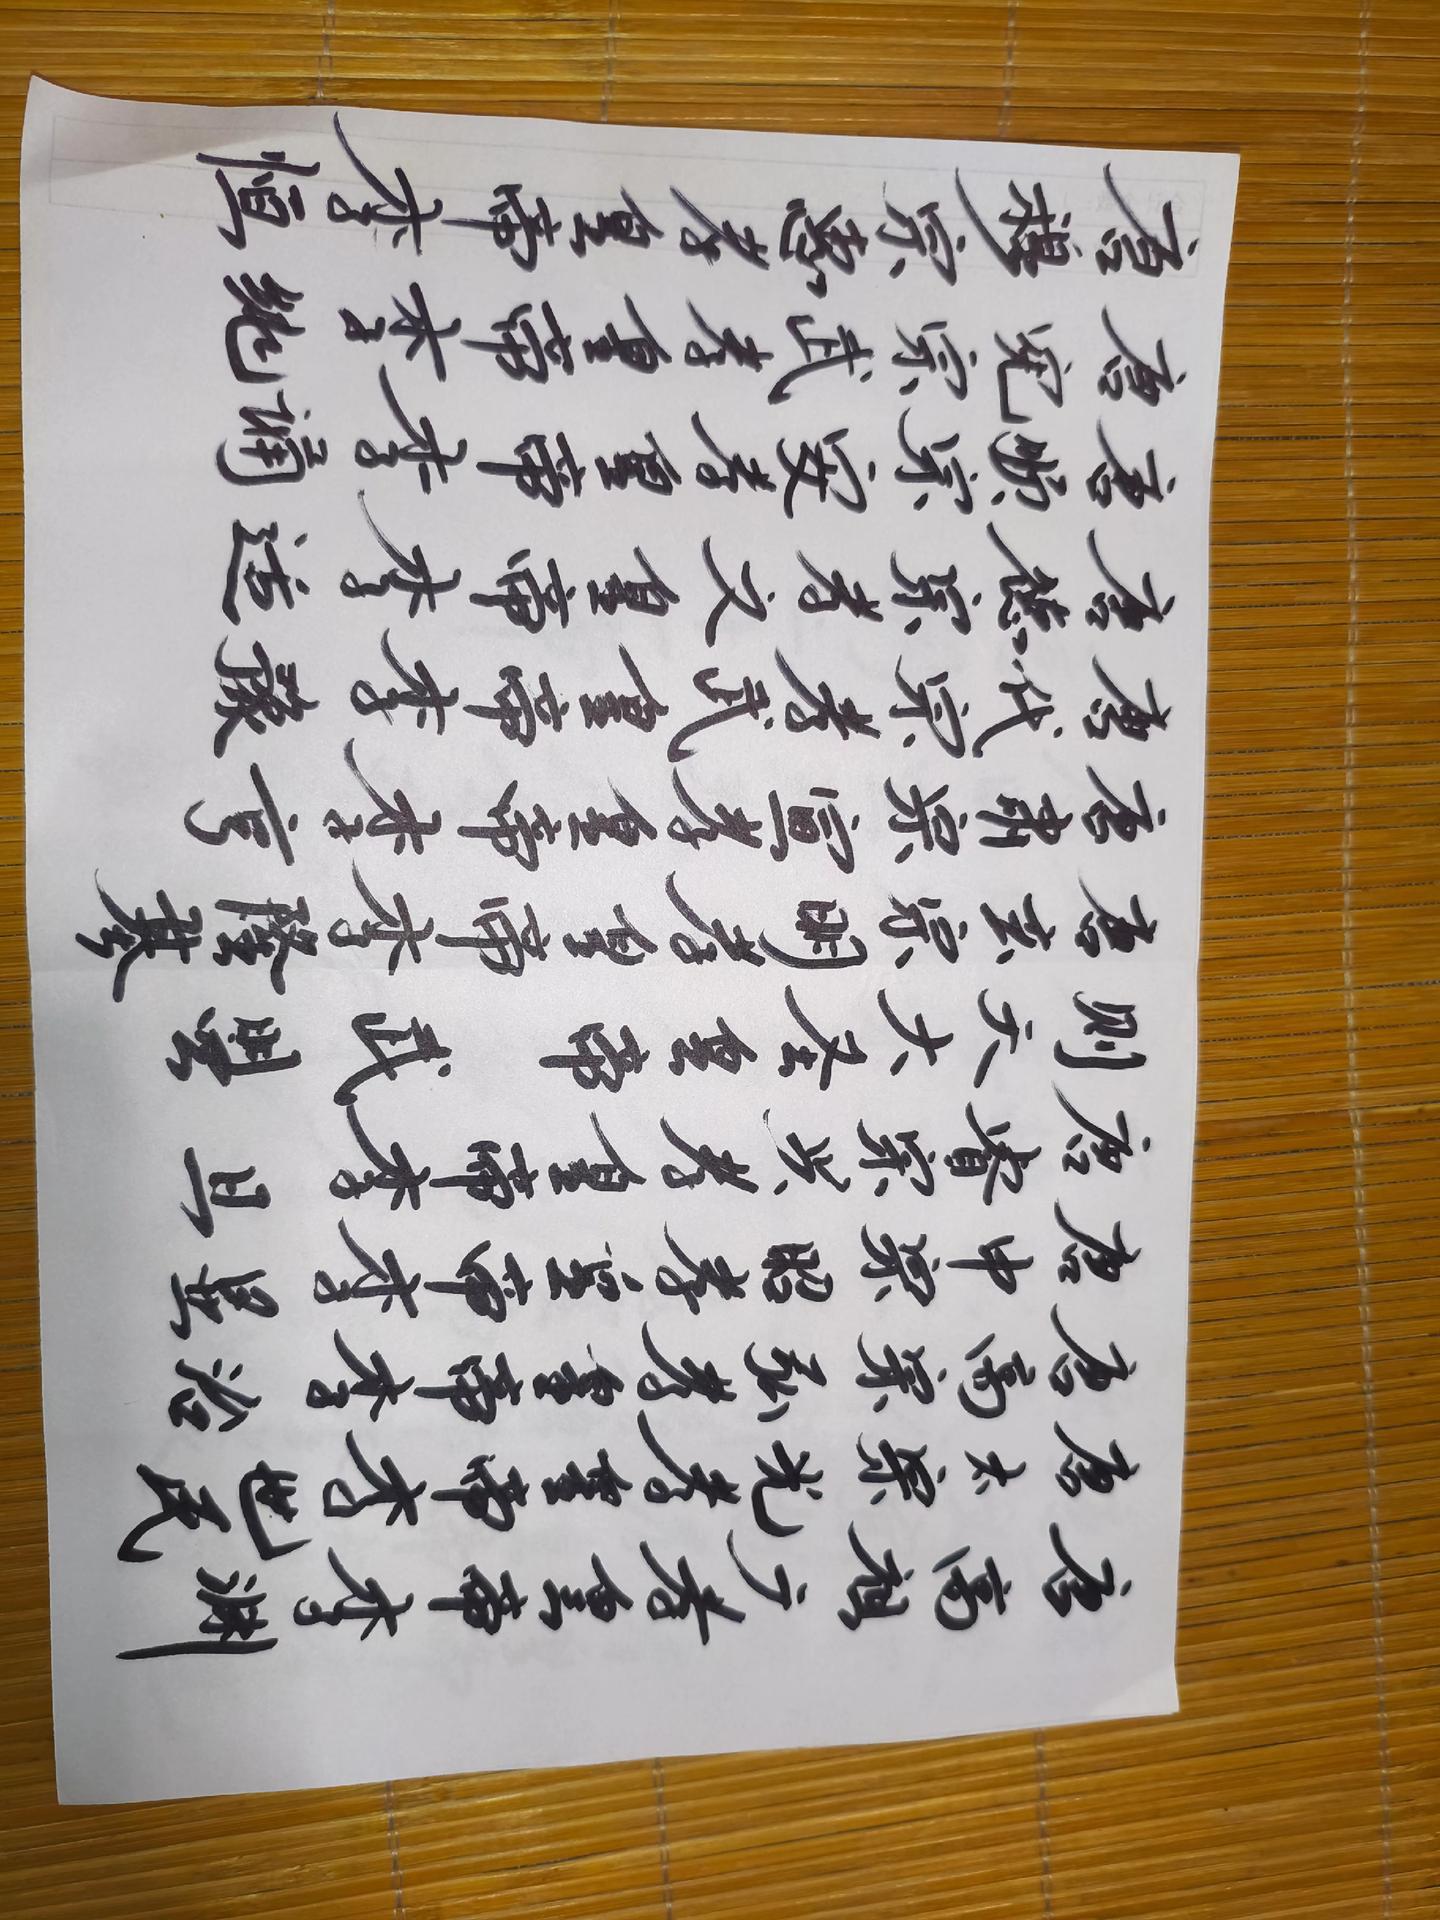 唐高祖广孝皇帝李渊
唐太宗光孝皇帝李世民
唐高宗弘孝皇帝李治
唐中宗昭孝皇帝李显
唐睿宗兴孝皇帝李旦
则天大圣皇帝武曌
唐玄宗明孝皇帝李隆基
唐肃宗宣孝皇帝李亨
唐代宗孝武皇帝李豫
唐德宗孝文皇帝李适
唐顺宗安孝皇帝李诵
唐宪宗武孝皇帝李纯
唐穆宗惠孝皇帝李恒